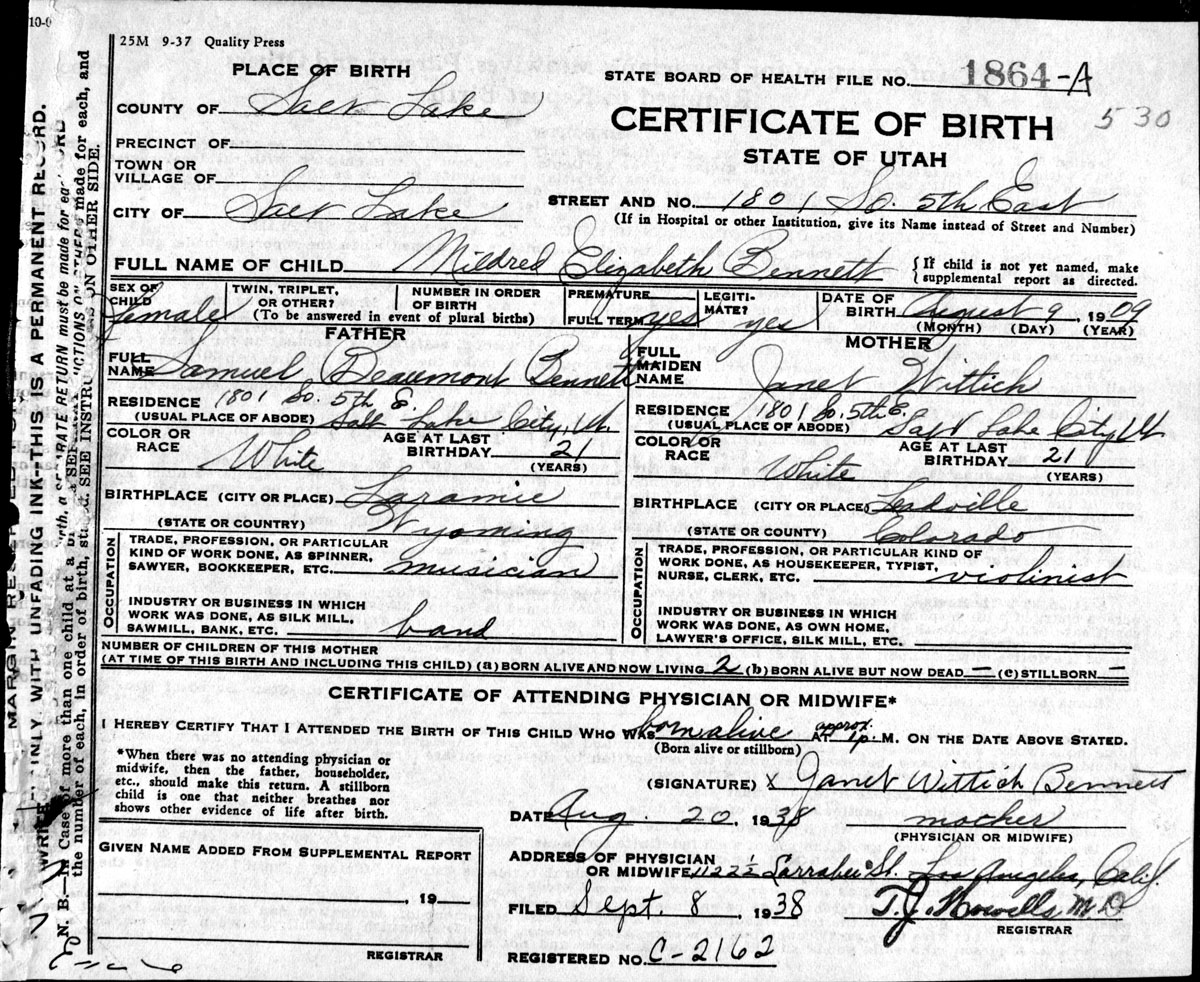 10-0
25M 9-37 Quality Press
PLACE OF BIRTH
STATE BOARD OF HEALTH FILE NO. 1864-A
COUNTY OF Salt Lake
CERTIFICATE OF BIRTH 530
PRECINCT OF
STATE OF UTAH
TOWN OR
VILLAGE OF
STREET AND NO. 1801 So. 5th East
CITY OF Salt Lake
(If in Hospital or other Institution, give its Name instead of Street and Number)
FULL NAME OF CHILD Mildred Elizabeth Bennett {If child is not yet named, make
supplemental report as directed.
SEX OF
CHILD female
TWIN, TRIPLET,
OR OTHER?
NUMBER IN ORDER
OF BIRTH
(To be answered in event of plural births)
PREMATURE
FULL TERM yes
LEGITI-
MATE? yes
DATE OF
BIRTH August 9, 1909
(MONTH) (DAY) (YEAR)
FATHER
FULL
NAME Samuel Beaumont Bennett
RESIDENCE 1801 So. 5th E.
(USUAL PLACE OF ABODE) Salt Lake City, Ut.
COLOR OR
RACE White
AGE AT LAST
BIRTHDAY 21
(YEARS)
BIRTHPLACE (CITY OR PLACE) Laramie
(STATE OR COUNTRY) Wyoming
OCCUPATION
TRADE, PROFESSION, OR PARTICULAR
KIND OF WORK DONE, AS SPINNER,
SAWYER, BOOKKEEPER, ETC. musician
INDUSTRY OR BUSINESS IN WHICH
WORK WAS DONE, AS SILK MILL,
SAWMILL, BANK, ETC. band
MOTHER
FULL
MAIDEN
NAME Janet Wittich
RESIDENCE 1801 So. 5th E.
(USUAL PLACE OF ABODE) Salt Lake City Ut
COLOR OR
RACE White
AGE AT LAST
BIRTHDAY 21
(YEARS)
BIRTHPLACE (CITY OR PLACE) Leadville
(STATE OR COUNTRY) Colorado
OCCUPATION
TRADE, PROFESSION, OR PARTICULAR KIND OF
WORK DONE, AS HOUSEKEEPER, TYPIST,
NURSE, CLERK, ETC. violinist
INDUSTRY OR BUSINESS IN WHICH
WORK WAS DONE, AS OWN HOME,
LAWYER'S OFFICE, SILK MILL, ETC.
NUMBER OF CHILDREN OF THIS MOTHER
(AT TIME OF THIS BIRTH AND INCLUDING THIS CHILD) (a) BORN ALIVE AND NOW LIVING 2 (b) BORN ALIVE BUT NOW DEAD — (c) STILLBORN —
CERTIFICATE OF ATTENDING PHYSICIAN OR MIDWIFE*
I HEREBY CERTIFY THAT I ATTENDED THE BIRTH OF THIS CHILD WHO WAS born alive AT approx. 1 p. M. ON THE DATE ABOVE STATED.
(Born alive or stillborn)
*When there was no attending physician or
midwife, then the father, householder,
etc., should make this return. A stillborn
child is one that neither breathes nor
shows other evidence of life after birth.
(SIGNATURE) x Janet Wittich Bennett
DATE Aug. 20, 1938 mother
(PHYSICIAN OR MIDWIFE)
GIVEN NAME ADDED FROM SUPPLEMENTAL REPORT
, 19
REGISTRAR
ADDRESS OF PHYSICIAN
OR MIDWIFE Larrabee St. Los Angeles, Calif.
FILED Sept. 8, 1938 T.J. Howells M.D
REGISTRAR
REGISTERED NO. C-2162
WRITE ONLY WITH UNFADING INK—THIS IS A PERMANENT RECORD.
N. B.—In Case of more than one child at a birth, a SEPARATE RETURN must be made for each, and
the number of each, in order of birth, stated. SEE INSTRUCTIONS ON OTHER SIDE.